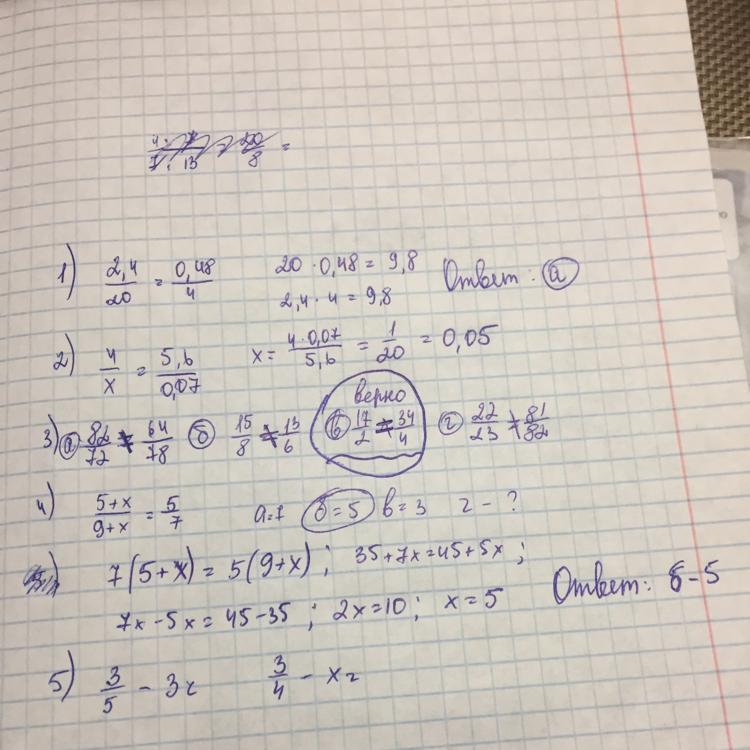 4 · 7 / 7 · 13 = 20/8 =
1) 2,4/20 = 0,48/4 20 · 0,48 = 9,8 Ответ: а
2,4 · 4 = 9,8
2) 4/x = 5,6/0,07 x = 4 · 0,07/5,6 = 1/20 = 0,05
верно
3) а 82/72 ≠ 64/78 б 15/8 ≠ 13/6 в 17/2 = 34/4 г 22/23 ≠ 81/82
4) 5+x/9+x = 5/7 а=7 б=5 в=3 г - ?
7(5+x) = 5(9+x); 35+7x=45+5x;
7x-5x = 45-35; 2x=10; x=5 Ответ: б-5
5) 3/5 - 3г 3/4 - xг